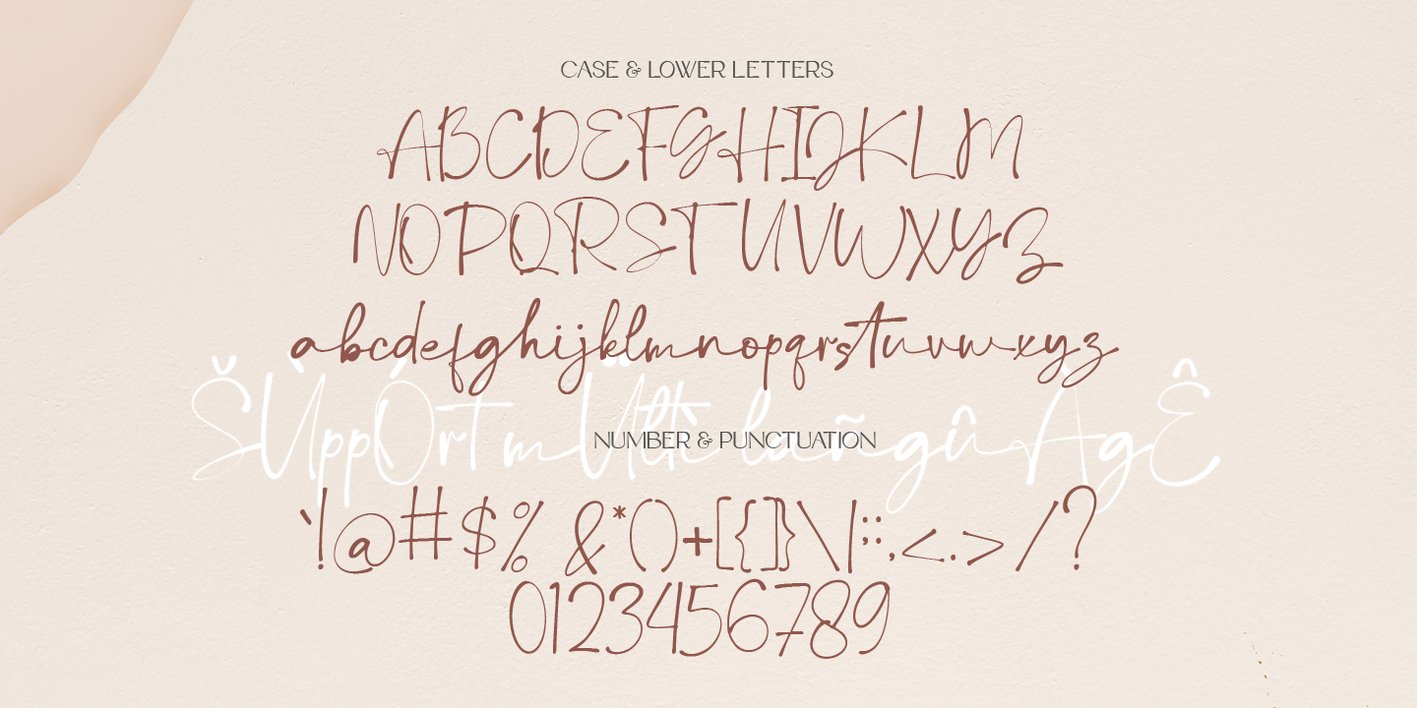 CASE & LOWER LETTERS
ABCDEFGHIJKLM
NOPQRSTUVWXYZ
abcdefghijklmnopqrstuvwxyz
ŠÙppÓrt mÜlti lañgûÀgÊ
NUMBER & PUNCTUATION
`!@#$% &*()+[{]}\|;:,<.>/?
0123456789